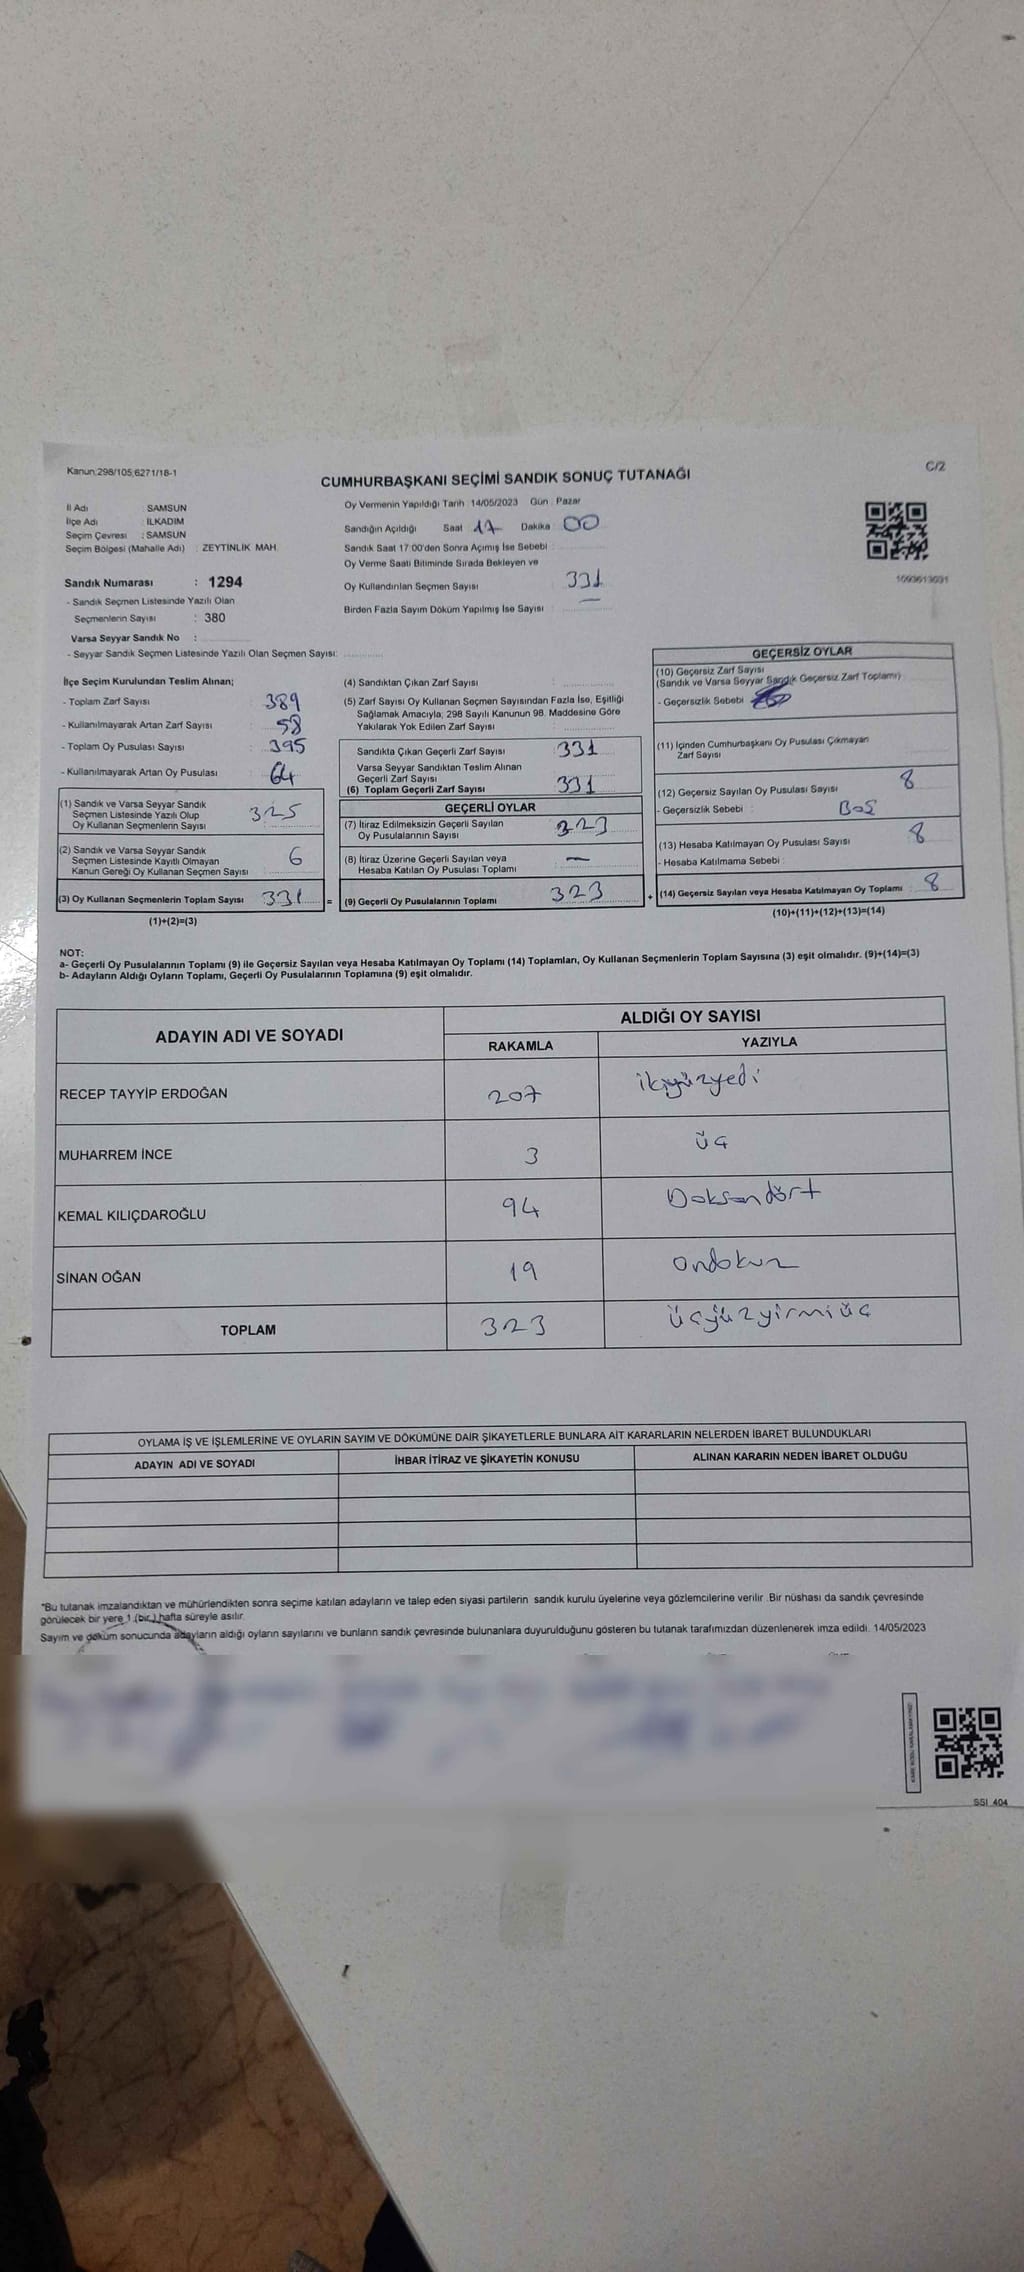 Kanun:298/105,6271/18-1
C/2
CUMHURBAŞKANI SEÇİMİ SANDIK SONUÇ TUTANAĞI
İl Adı : SAMSUN
İlçe Adı : İLKADIM
Seçim Çevresi : SAMSUN
Seçim Bölgesi (Mahalle Adı) : ZEYTİNLİK MAH.
Sandık Numarası : 1294
- Sandık Seçmen Listesinde Yazılı Olan
Seçmenlerin Sayısı : 380
Varsa Seyyar Sandık No :
- Seyyar Sandık Seçmen Listesinde Yazılı Olan Seçmen Sayısı:
Oy Vermenin Yapıldığı Tarih : 14/05/2023 Gün : Pazar
Sandığın Açıldığı Saat 17 Dakika : 00
Sandık Saat 17:00'den Sonra Açımış İse Sebebi :
Oy Verme Saati Bitiminde Sırada Bekleyen ve
Oy Kullandırılan Seçmen Sayısı : 331
Birden Fazla Sayım Döküm Yapılmış İse Sayısı : —
1093613031
İlçe Seçim Kurulundan Teslim Alınan;
- Toplam Zarf Sayısı : 389
- Kullanılmayarak Artan Zarf Sayısı : 58
- Toplam Oy Pusulası Sayısı : 395
- Kullanılmayarak Artan Oy Pusulası : 64
(1) Sandık ve Varsa Seyyar Sandık
Seçmen Listesinde Yazılı Olup
Oy Kullanan Seçmenlerin Sayısı 325
(2) Sandık ve Varsa Seyyar Sandık
Seçmen Listesinde Kayıtlı Olmayan
Kanun Gereği Oy Kullanan Seçmen Sayısı 6
(3) Oy Kullanan Seçmenlerin Toplam Sayısı 331 =
(1)+(2)=(3)
(4) Sandıktan Çıkan Zarf Sayısı :
(5) Zarf Sayısı Oy Kullanan Seçmen Sayısından Fazla İse, Eşitliği
Sağlamak Amacıyla; 298 Sayılı Kanunun 98. Maddesine Göre
Yakılarak Yok Edilen Zarf Sayısı :
Sandıkta Çıkan Geçerli Zarf Sayısı 331
Varsa Seyyar Sandıktan Teslim Alınan
Geçerli Zarf Sayısı
(6) Toplam Geçerli Zarf Sayısı 331
GEÇERLİ OYLAR
(7) İtiraz Edilmeksizin Geçerli Sayılan
Oy Pusulalarının Sayısı 323
(8) İtiraz Üzerine Geçerli Sayılan veya
Hesaba Katılan Oy Pusulası Toplamı —
(9) Geçerli Oy Pusulalarının Toplamı 323 +
GEÇERSİZ OYLAR
(10) Geçersiz Zarf Sayısı
(Sandık ve Varsa Seyyar Sandık Geçersiz Zarf Toplamı)
- Geçersizlik Sebebi :
(11) İçinden Cumhurbaşkanı Oy Pusulası Çıkmayan
Zarf Sayısı
(12) Geçersiz Sayılan Oy Pusulası Sayısı 8
- Geçersizlik Sebebi : BOŞ
(13) Hesaba Katılmayan Oy Pusulası Sayısı 8
- Hesaba Katılmama Sebebi :
(14) Geçersiz Sayılan veya Hesaba Katılmayan Oy Toplamı : 8
(10)+(11)+(12)+(13)=(14)
NOT:
a- Geçerli Oy Pusulalarının Toplamı (9) ile Geçersiz Sayılan veya Hesaba Katılmayan Oy Toplamı (14) Toplamları, Oy Kullanan Seçmenlerin Toplam Sayısına (3) eşit olmalıdır. (9)+(14)=(3)
b- Adayların Aldığı Oyların Toplamı, Geçerli Oy Pusulalarının Toplamına (9) eşit olmalıdır.
ADAYIN ADI VE SOYADI
ALDIĞI OY SAYISI
RAKAMLA YAZIYLA
RECEP TAYYİP ERDOĞAN 207 ikiyüzyedi
MUHARREM İNCE 3 üç
KEMAL KILIÇDAROĞLU 94 Doksandört
SİNAN OĞAN 19 ondokuz
TOPLAM 323 üçyüzyirmiüç
OYLAMA İŞ VE İŞLEMLERİNE VE OYLARIN SAYIM VE DÖKÜMÜNE DAİR ŞİKAYETLERLE BUNLARA AİT KARARLARIN NELERDEN İBARET BULUNDUKLARI
ADAYIN ADI VE SOYADI İHBAR İTİRAZ VE ŞİKAYETİN KONUSU ALINAN KARARIN NEDEN İBARET OLDUĞU
"Bu tutanak imzalandıktan ve mühürlendikten sonra seçime katılan adayların ve talep eden siyasi partilerin sandık kurulu üyelerine veya gözlemcilerine verilir. Bir nüshası da sandık çevresinde
görülecek bir yere 1 (bir) hafta süreyle asılır.
Sayım ve döküm sonucunda adayların aldığı oyların sayılarını ve bunların sandık çevresinde bulunanlara duyurulduğunu gösteren bu tutanak tarafımızdan düzenlenerek imza edildi. 14/05/2023
SSI_404